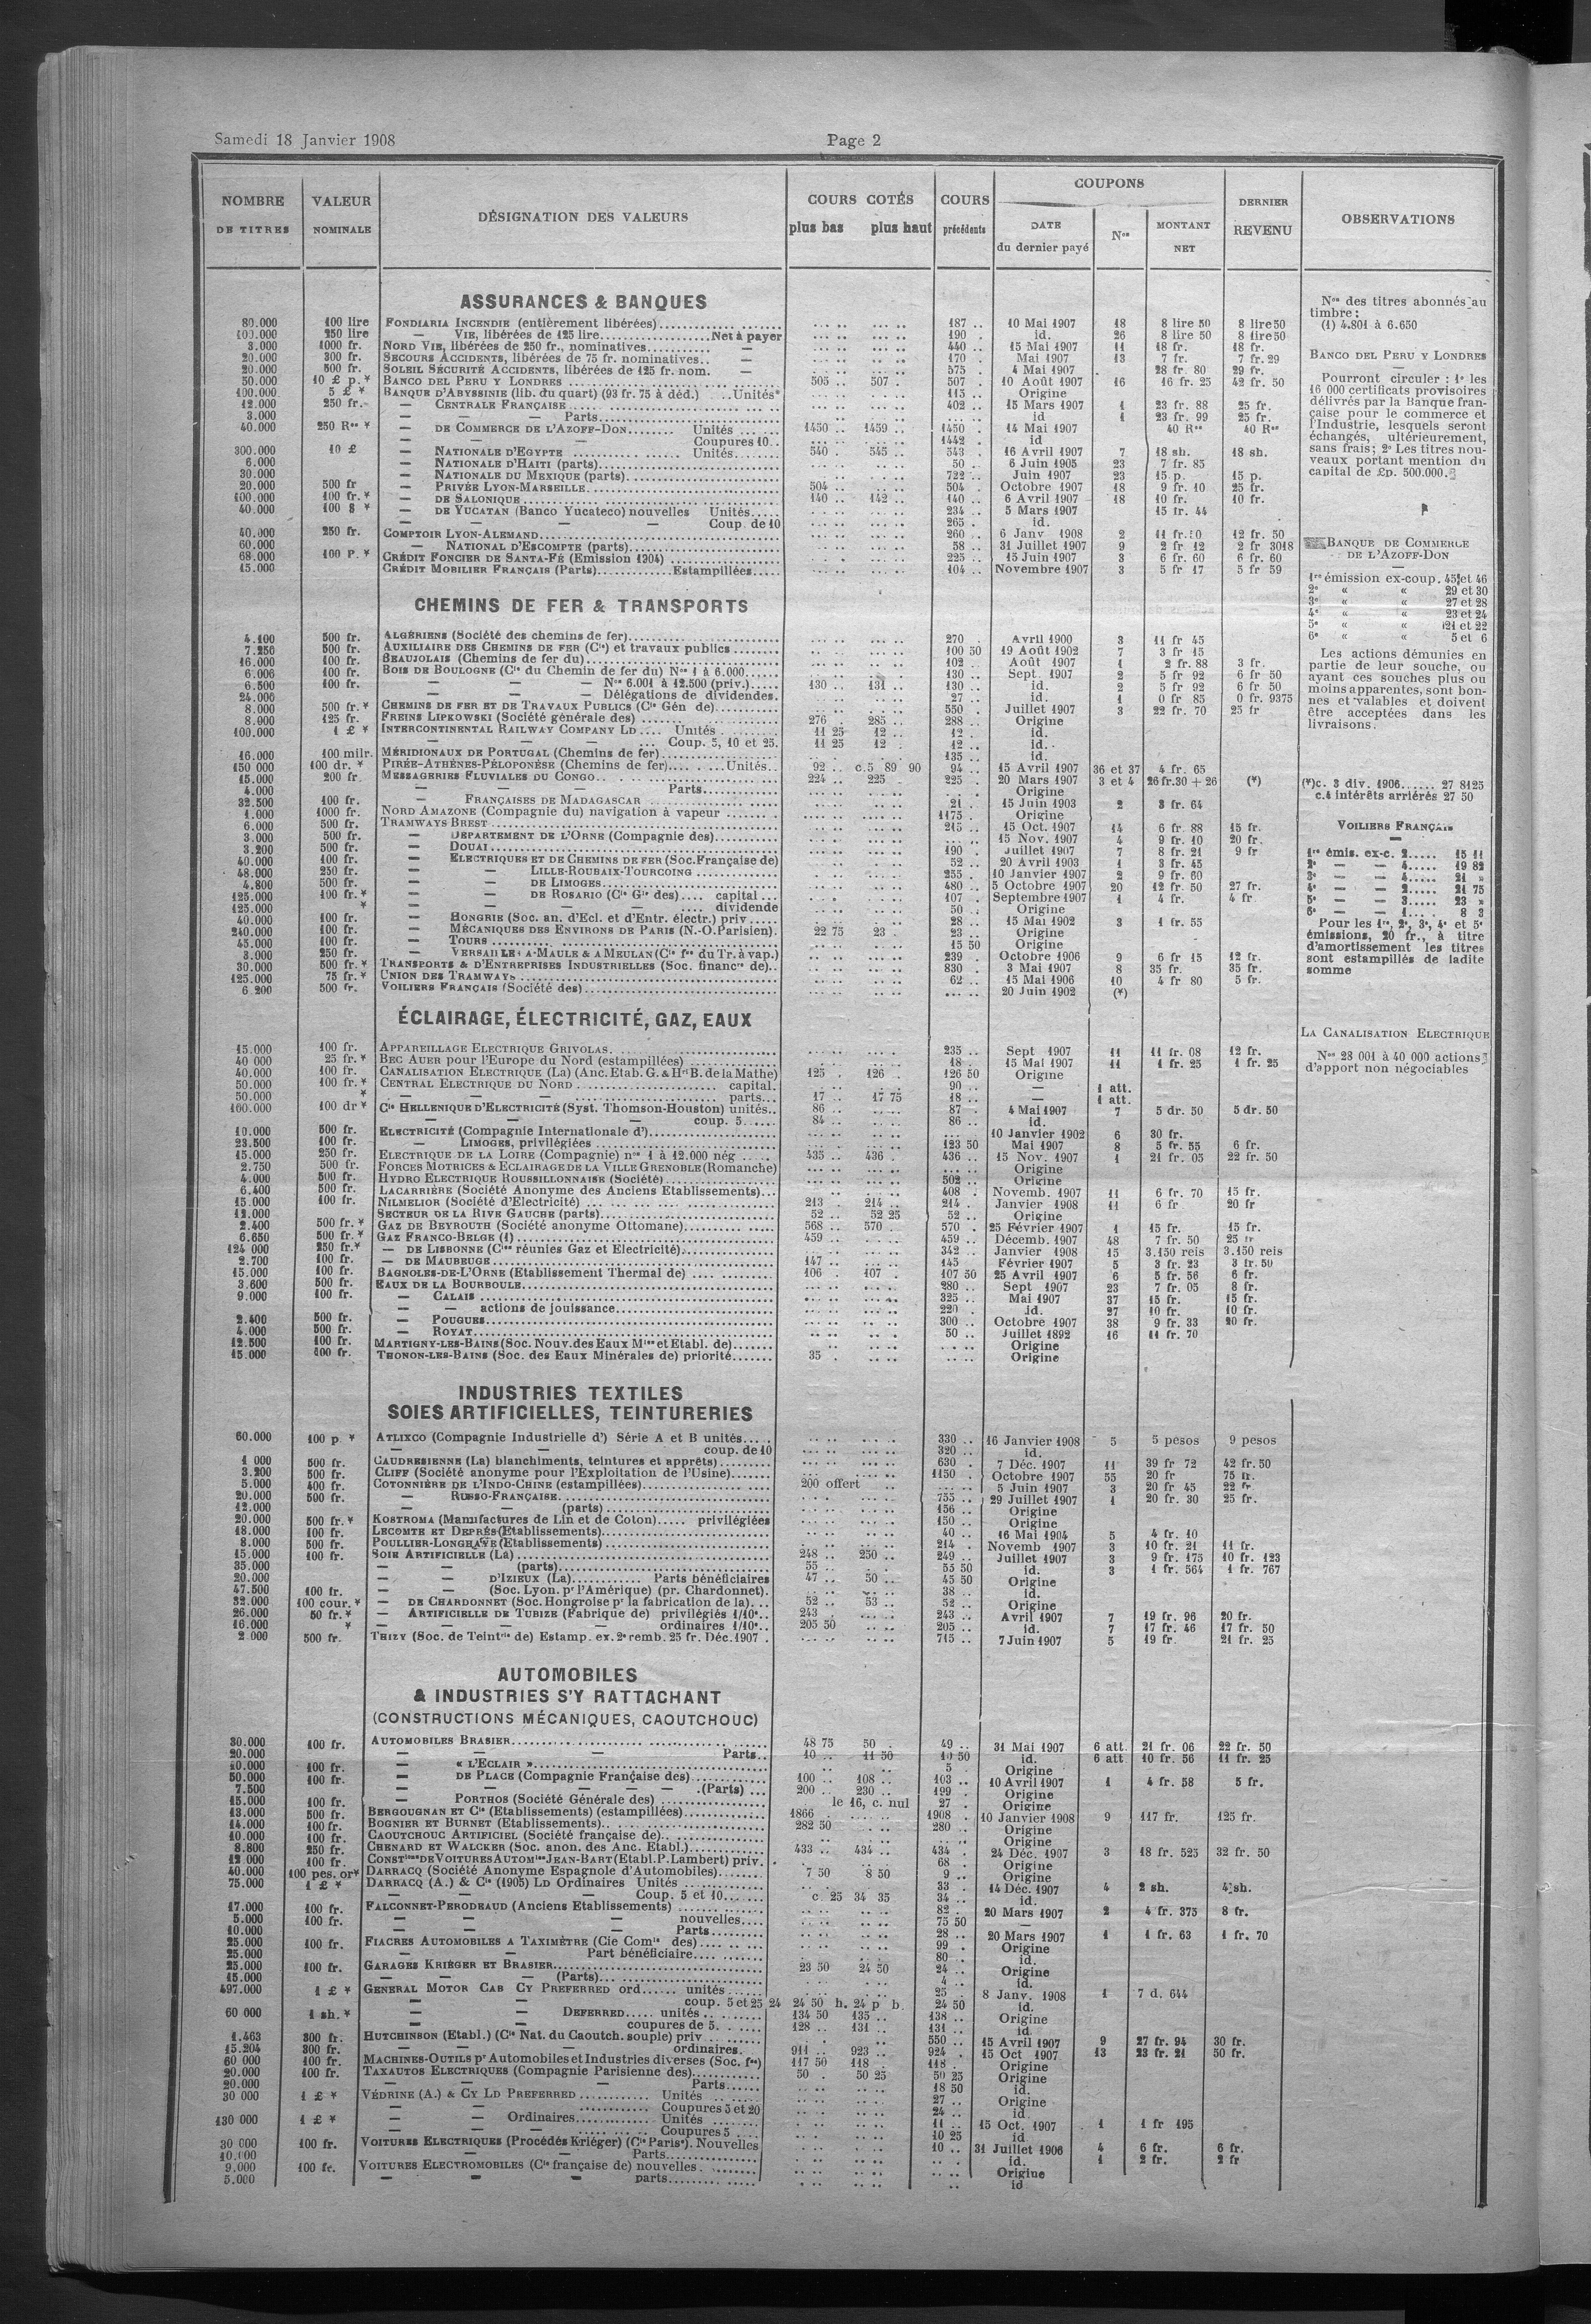 Samedi 18 Janvier 1908
Page 2
NOMBRE DE TITRES | VALEUR NOMINALE | DÉSIGNATION DES VALEURS | COURS COTÉS plus bas plus haut | COURS précédents | COUPONS DATE du dernier payé | Nos | MONTANT NET | DERNIER REVENU | OBSERVATIONS
ASSURANCES & BANQUES
80.000 100 lire FONDIARIA INCENDIE (entièrement libérées) 187 .. 10 Mai 1907 18 8 lire 50 8 lire 50
100.000 250 lire — VIE, libérées de 125 lire Net à payer 190 . id. 26 8 lire 50 8 lire 50
3.000 1000 fr. NORD VIE, libérées de 250 fr., nominatives — 440 .. 15 Mai 1907 11 18 fr. 18 fr.
20.000 300 fr. SECOURS ACCIDENTS, libérées de 75 fr. nominatives — 170 . Mai 1907 13 7 fr. 7 fr. 29
20.000 500 fr. SOLEIL SÉCURITÉ ACCIDENTS, libérées de 125 fr. nom. — 575 . 4 Mai 1907 28 fr. 80 29 fr.
50.000 10 £ p.* BANCO DEL PERU Y LONDRES 505 .. 507 . 507 . 10 Août 1907 16 16 fr. 25 42 fr. 50
100.000 5 £ * BANQUE D'ABYSSINIE (lib. du quart) (93 fr. 75 à déd.) ..Unités 115 .. Origine
12.000 250 fr. — CENTRALE FRANÇAISE 402 .. 15 Mars 1907 1 23 fr. 88 25 fr.
3.000 — — Parts id 1 23 fr. 99 25 fr.
40.000 250 Ros * — DE COMMERCE DE L'AZOFF-DON Unités 1450 .. 1459 .. 1450 . 14 Mai 1907 40 Ros 40 Ros
— — — Coupures 10 1442 . id
300.000 10 £ — NATIONALE D'EGYPTE Unités 540 . 545 .. 543 . 16 Avril 1907 7 18 sh. 18 sh.
6.000 — NATIONALE D'HAITI (parts) 50 .. 6 Juin 1905 23 7 fr. 85
30.000 — NATIONALE DU MEXIQUE (parts) 722 .. Juin 1907 23 15 p. 15 p.
20.000 500 fr — PRIVÉE LYON-MARSEILLE 504 .. 504 . Octobre 1907 18 9 fr. 10 25 fr.
100.000 100 fr.* — DE SALONIQUE 140 .. 142 .. 140 .. 6 Avril 1907 18 10 fr. 10 fr.
40.000 100 $ * — DE YUCATAN (Banco Yucateco) nouvelles Unités 234 .. 5 Mars 1907 15 fr. 44
— — — Coup. de 10 265 . id.
40.000 250 fr. COMPTOIR LYON-ALEMAND 260 .. 6 Janv 1908 2 11 fr.10 12 fr. 50
60.000 — NATIONAL D'ESCOMPTE (parts) 58 .. 31 Juillet 1907 9 2 fr. 12 2 fr. 3018
68.000 100 P.* CRÉDIT FONCIER DE SANTA-FÉ (Emission 1904) 225 .. 15 Juin 1907 3 6 fr. 60 6 fr. 60
15.000 CRÉDIT MOBILIER FRANÇAIS (Parts) Estampillées 104 .. Novembre 1907 3 5 fr 17 5 fr 59
CHEMINS DE FER & TRANSPORTS
4.100 500 fr. ALGÉRIENS (Société des chemins de fer) 270 . Avril 1900 3 11 fr 45
7.250 500 fr. AUXILIAIRE DES CHEMINS DE FER (Cie) et travaux publics 100 50 19 Août 1902 7 3 fr 15
16.000 100 fr. BEAUJOLAIS (Chemins de fer du) 102 . Août 1907 1 2 fr. 88 3 fr.
6.006 100 fr. BOIS DE BOULOGNE (Cie du Chemin de fer du) Nos 1 à 6.000 130 .. Sept. 1907 2 5 fr 92 6 fr 50
6.500 100 fr. — — — Nos 6.001 à 12.500 (priv.) 130 .. 131 .. 130 .. id. 2 5 fr 92 6 fr. 50
24.006 — — — Délégations de dividendes. 27 .. id. 1 0 fr 85 0 fr. 9375
8.000 500 fr.* CHEMINS DE FER ET DE TRAVAUX PUBLICS (Cie Gén de) 550 . Juillet 1907 3 22 fr. 70 25 fr
8.000 125 fr. FREINS LIPKOWSKI (Société générale des) 276 . 285 .. 288 .. Origine
100.000 1 £ * INTERCONTINENTAL RAILWAY COMPANY LD Unités 11 25 12 .. 12 . id.
— — Coup. 5, 10 et 25. 11 25 12 . 12 .. id.
16.000 100 milr. MÉRIDIONAUX DE PORTUGAL (Chemins de fer) 135 .. id.
150 000 100 dr. * PIRÉE-ATHÈNES-PÉLOPONÈSE (Chemins de fer) Unités 92 .. c.5 89 90 94 .. 15 Avril 1907 36 et 37 4 fr. 65
15.000 200 fr. MESSAGERIES FLUVIALES DU CONGO 224 .. 225 . 225 . 20 Mars 1907 3 et 4 26 fr.30 + 26 (*)
4.000 — — Parts Origine
32.500 100 fr. — FRANÇAISES DE MADAGASCAR 21 . 15 Juin 1903 2 3 fr. 64
1.000 1000 fr. NORD AMAZONE (Compagnie du) navigation à vapeur 1175 . Origine
6.000 500 fr. TRAMWAYS BREST 215 .. 15 Oct. 1907 14 6 fr. 88 15 fr.
3.000 500 fr. — DÉPARTEMENT DE L'ORNE (Compagnie des) 15 Nov. 1907 4 9 fr. 10 20 fr.
3.200 500 fr. — DOUAI 190 . Juillet 1907 7 8 fr. 21 9 fr
40.000 100 fr. — ELECTRIQUES ET DE CHEMINS DE FER (Soc. Française de) 52 .. 20 Avril 1903 1 3 fr. 45
48.000 250 fr. — — LILLE-ROUBAIX-TOURCOING 255 . 10 Janvier 1907 2 9 fr. 60
4.800 500 fr. — — DE LIMOGES 480 .. 5 Octobre 1907 20 12 fr. 50 27 fr.
125.000 100 fr.* — — DE ROSARIO (Cie Gle des) capital 107 . Septembre 1907 1 4 fr. 4 fr
125.000 * — — — dividende 50 . Origine
40.000 100 fr. — HONGRIE (Soc. an. d'Ecl. et d'Entr. électr.) priv 28 .. 15 Mai 1902 3 1 fr. 55
240.000 100 fr. — MÉCANIQUES DES ENVIRONS DE PARIS (N.-O. Parisien). 22 75 23 . 23 .. Origine
45.000 100 fr. — TOURS 15 50 Origine
3.000 250 fr. — VERSAILLES A MAULE & A MEULAN (Cie fse du Tr. à vap.) 239 . Octobre 1906 9 6 fr 15 12 fr.
30.000 500 fr.* TRANSPORTS & D'ENTREPRISES INDUSTRIELLES (Soc. financre de) 830 . 3 Mai 1907 8 35 fr. 35 fr.
125.000 75 fr.* UNION DES TRAMWAYS 62 .. 15 Mai 1906 10 4 fr 80 5 fr.
6.200 500 fr. VOILIERS FRANÇAIS (Société des) 20 Juin 1902 (*)
ÉCLAIRAGE, ÉLECTRICITÉ, GAZ, EAUX
15.000 100 fr. APPAREILLAGE ELECTRIQUE GRIVOLAS 235 .. Sept 1907 11 11 fr. 08 12 fr.
40 000 25 fr.* BEC AUER pour l'Europe du Nord (estampillées) 18 . 15 Mai 1907 11 1 fr. 25 1 fr. 25
40.000 100 fr. CANALISATION ELECTRIQUE (La) (Anc. Etab. G. & Hri B. de la Mathe) 125 . 126 . 126 50 Origine
50.000 100 fr.* CENTRAL ELECTRIQUE DU NORD capital. 90 .. — 1 att.
50.000 * — — parts 17 .. 17 75 18 .. — 1 att.
160.000 100 dr* Cie HELLENIQUE D'ELECTRICITÉ (Syst. Thomson-Houston) unités 86 .. 87 . 4 Mai 1907 7 5 dr. 50 5 dr. 50
— — — coup. 5 84 .. 86 .. id.
10.000 500 fr. ELECTRICITÉ (Compagnie Internationale d') 10 Janvier 1902 6 30 fr.
23.500 100 fr. — LIMOGES, privilégiées 123 50 Mai 1907 8 5 fr. 55 6 fr.
15.000 250 fr. ELECTRIQUE DE LA LOIRE (Compagnie) nos 1 à 12.000 nég 435 .. 436 . 436 .. 15 Nov. 1907 1 21 fr. 05 22 fr. 50
2.750 500 fr. FORCES MOTRICES & ECLAIRAGE DE LA VILLE GRENOBLE (Romanche) Origine
4.000 500 fr. HYDRO ELECTRIQUE ROUSSILLONNAISE (Société) 502 .. Origine
6.400 500 fr. LACARRIÈRE (Société Anonyme des Anciens Etablissements) 408 . Novemb. 1907 11 6 fr. 70 15 fr.
15.000 100 fr. NILMELIOR (Société d'Electricité) 213 . 214 .. 214 . Janvier 1908 11 6 fr 20 fr
12.000 SECTEUR DE LA RIVE GAUCHE (parts) 52 .. 52 25 52 .. Origine
2.400 500 fr.* GAZ DE BEYROUTH (Société anonyme Ottomane) 568 .. 570 . 570 . 25 Février 1907 1 15 fr. 15 fr.
6.650 500 fr.* GAZ FRANCO-BELGE (1) 459 .. 459 .. Décemb. 1907 48 7 fr. 50 25 fr
124 000 250 fr.* — DE LISBONNE (Cies réunies Gaz et Electricité) 342 .. Janvier 1908 15 3.150 reis 3.150 reis
2.700 100 fr. — DE MAUBEUGE 147 .. 145 Février 1907 5 3 fr. 23 3 fr. 50
15.000 100 fr. BAGNOLES-DE-L'ORNE (Etablissement Thermal de) 106 . 107 . 107 50 25 Avril 1907 6 5 fr. 56 6 fr.
3.600 500 fr. EAUX DE LA BOURBOULE 280 .. Sept 1907 23 7 fr. 05 8 fr.
9.000 100 fr. — CALAIS 325 .. Mai 1907 37 15 fr. 15 fr.
— — actions de jouissance 220 . id. 27 10 fr. 10 fr.
2.400 500 fr. — POUGUES 300 .. Octobre 1907 38 9 fr. 33 20 fr.
4.000 500 fr. — ROYAT 50 .. Juillet 1892 16 11 fr. 70
12.500 100 fr. MARTIGNY-LES-BAINS (Soc. Nouv. des Eaux Mles et Etabl. de) Origine
15.000 100 fr. THONON-LES-BAINS (Soc. des Eaux Minérales de) priorité 35 . Origine
INDUSTRIES TEXTILES
SOIES ARTIFICIELLES, TEINTURERIES
60.000 100 p. * ATLIXCO (Compagnie Industrielle d') Série A et B unités 330 .. 16 Janvier 1908 5 5 pesos 9 pesos
— — coup. de 10 320 .. id.
1 000 500 fr. CAUDRESIENNE (La) blanchiments, teintures et apprêts) 630 . 7 Déc. 1907 11 39 fr 72 42 fr. 50
3.200 500 fr. CLIFF (Société anonyme pour l'Exploitation de l'Usine) 1150 . Octobre 1907 55 20 fr 75 fr.
5.000 400 fr. COTONNIÈRE DE L'INDO-CHINE (estampillées) 200 offert 5 Juin 1907 3 20 fr 45 22 fr
20.000 500 fr. — RUSSO-FRANÇAISE 755 .. 29 Juillet 1907 1 20 fr. 30 25 fr.
12.000 — — (parts) 156 .. Origine
20.000 500 fr.* KOSTROMA (Manufactures de Lin et de Coton) privilégiées 150 .. Origine
18.000 100 fr. LECOMTE ET DEPRÉS (Etablissements) 40 .. 16 Mai 1904 5 4 fr. 10
8.000 500 fr. POULLIER-LONGHAYE (Etablissements) 214 . Novemb 1907 3 10 fr. 21 11 fr.
15.000 100 fr. SOIE ARTIFICIELLE (La) 248 .. 250 .. 249 .. Juillet 1907 3 9 fr. 175 10 fr. 123
35.000 — — (parts) 55 .. 55 50 id. 3 1 fr. 564 1 fr. 767
20.000 — D'IZIEUX (La) Parts bénéficiaires 47 .. 50 .. 45 50 Origine
47.500 100 fr. — — (Soc. Lyon. pr l'Amérique) (pr. Chardonnet). 38 .. id.
32.000 100 cour.* — DE CHARDONNET (Soc. Hongroise pr la fabrication de la) 52 .. 53 .. 52 .. Origine
26.000 50 fr.* — ARTIFICIELLE DE TUBIZE (Fabrique de) privilégiés 1/10e 243 . 243 .. Avril 1907 7 19 fr. 96 20 fr.
16.000 * — — — ordinaires 1/10e 205 50 205 .. id. 7 17 fr. 46 17 fr. 50
2.000 500 fr. THIZY (Soc. de Teintrie de) Estamp. ex. 2e remb. 25 fr. Déc. 1907 715 .. 7 Juin 1907 5 19 fr. 21 fr. 25
AUTOMOBILES
& INDUSTRIES S'Y RATTACHANT
(CONSTRUCTIONS MÉCANIQUES, CAOUTCHOUC)
30.000 100 fr. AUTOMOBILES BRASIER 48 75 50 . 49 .. 31 Mai 1907 6 att. 21 fr. 06 22 fr. 50
20.000 — — — Parts 10 .. 11 50 10 50 id. 6 att 10 fr. 56 11 fr. 25
10.000 100 fr. — « L'ECLAIR » 5 . Origine
50.000 100 fr. — DE PLACE (Compagnie Française des) 100 .. 108 .. 103 .. 10 Avril 1907 1 4 fr. 58 5 fr.
7.500 — — — — (Parts) 200 .. 230 .. 199 . Origine
15.000 100 fr. — PORTHOS (Société Générale des) le 16, c. nul 27 . Origine
13.000 500 fr. BERGOUGNAN ET Cie (Etablissements) (estampillées) 1866 . 1908 . 10 Janvier 1908 9 117 fr. 125 fr.
14.000 100 fr. BOGNIER ET BURNET (Etablissements) 282 50 280 .. Origine
10.000 100 fr. CAOUTCHOUC ARTIFICIEL (Société française de) Origine
8.800 250 fr. CHENARD ET WALCKER (Soc. anon. des Anc. Etabl.) 433 .. 434 .. 434 . 24 Déc. 1907 3 18 fr. 525 32 fr. 50
12 000 100 fr. CONSTions DE VOITURES AUTOMbles JEAN-BART (Etabl. P. Lambert) priv. 68 . Origine
40.000 100 pes. or* DARRACQ (Société Anonyme Espagnole d'Automobiles) 7 50 8 50 9 .. Origine
75.000 1 £ * DARRACQ (A.) & Cie (1905) LD Ordinaires Unités 33 . 14 Déc. 1907 4 2 sh. 4 sh.
— — — Coup. 5 et 10 c. 25 34 35 34 .. id.
17.000 100 fr. FALCONNET-PERODEAUD (Anciens Etablissements) 82 . 20 Mars 1907 2 4 fr. 375 8 fr.
5.000 100 fr. — — — nouvelles 75 50 —
10.000 — — — Parts 28 .. 20 Mars 1907 1 1 fr. 63 1 fr. 70
25.000 100 fr. FIACRES AUTOMOBILES A TAXIMÈTRE (Cie Comle des) 99 . Origine
25.000 — — Part bénéficiaire 80 . id.
25.000 100 fr. GARAGES KRIÉGER ET BRASIER 23 50 24 50 24 .. Origine
15.000 — — — (Parts) 4 .. id.
497.000 1 £ * GENERAL MOTOR CAB CY PREFERRED ord unités 25 . 8 Janv. 1908 1 7 d. 644
— — coup. 5 et 25 24 24 50 h. 24 p b. 24 50 id.
60 000 1 sh.* — — DEFERRED unités 134 50 135 .. 138 .. Origine
— — coupures de 5. 128 .. 131 .. 131 .. id.
1.463 300 fr. HUTCHINSON (Etabl.) (Cie Nat. du Caoutch. souple) priv 550 .. 15 Avril 1907 9 27 fr. 94 30 fr.
15.204 300 fr. — — — ordinaires. 911 .. 923 .. 924 . 15 Oct 1907 13 23 fr. 21 50 fr.
60 000 100 fr. MACHINES-OUTILS pr Automobiles et Industries diverses (Soc. fse) 117 50 118 . 118 . Origine
20.000 100 fr. TAXAUTOS ELECTRIQUES (Compagnie Parisienne des) 50 . 50 25 50 25 Origine
20.000 — — — Parts 18 50 id.
30 000 1 £ * VÉDRINE (A.) & CY LD PREFERRED Unités 27 .. Origine
— — Coupures 5 et 20 24 .. id
130 000 1 £ * — — Ordinaires Unités 11 .. 15 Oct. 1907 1 1 fr 195
— — Coupures 5 10 25 id
30 000 100 fr. VOITURES ELECTRIQUES (Procédés Kriéger) (Cie Parisne). Nouvelles 10 .. 31 Juillet 1906 4 6 fr. 6 fr.
10.000 — — Parts id. 1 2 fr. 2 fr
9.000 100 fr. VOITURES ELECTROMOBILES (Cie française de) nouvelles Origine
5.000 — — — parts id
Nos des titres abonnés au
timbre :
(1) 4.801 à 6.650
BANCO DEL PERU Y LONDRES
Pourront circuler : 1° les
16 000 certificats provisoires
délivrés par la Banque fran-
çaise pour le commerce et
l'Industrie, lesquels seront
échangés, ultérieurement,
sans frais; 2° Les titres nou-
veaux portant mention du
capital de £p. 500.000.
BANQUE DE COMMERCE
DE L'AZOFF-DON
1re émission ex-coup. 45 et 46
2e « « 29 et 30
3e « « 27 et 28
4e « « 23 et 24
5e « « 21 et 22
6e « « 5 et 6
Les actions démunies en
partie de leur souche, ou
ayant ces souches plus ou
moins apparentes, sont bon-
nes et valables et doivent
être acceptées dans les
livraisons.
(*)c. 3 div. 1906...... 27 8125
c.4 intérêts arriérés 27 50
VOILIERS FRANÇAIS
1re émis. ex-c. 2..... 15 11
2e — — 4..... 19 82
3e — — 4..... 21 »
4e — — 2..... 21 75
5e — — 3..... 23 »
6e — — 1.... 8 3
Pour les 1re, 2e, 3e, 4e et 5e
émissions, 20 fr., à titre
d'amortissement les titres
sont estampillés de ladite
somme
LA CANALISATION ELECTRIQUE
Nos 28 001 à 40 000 actions
d'apport non négociables